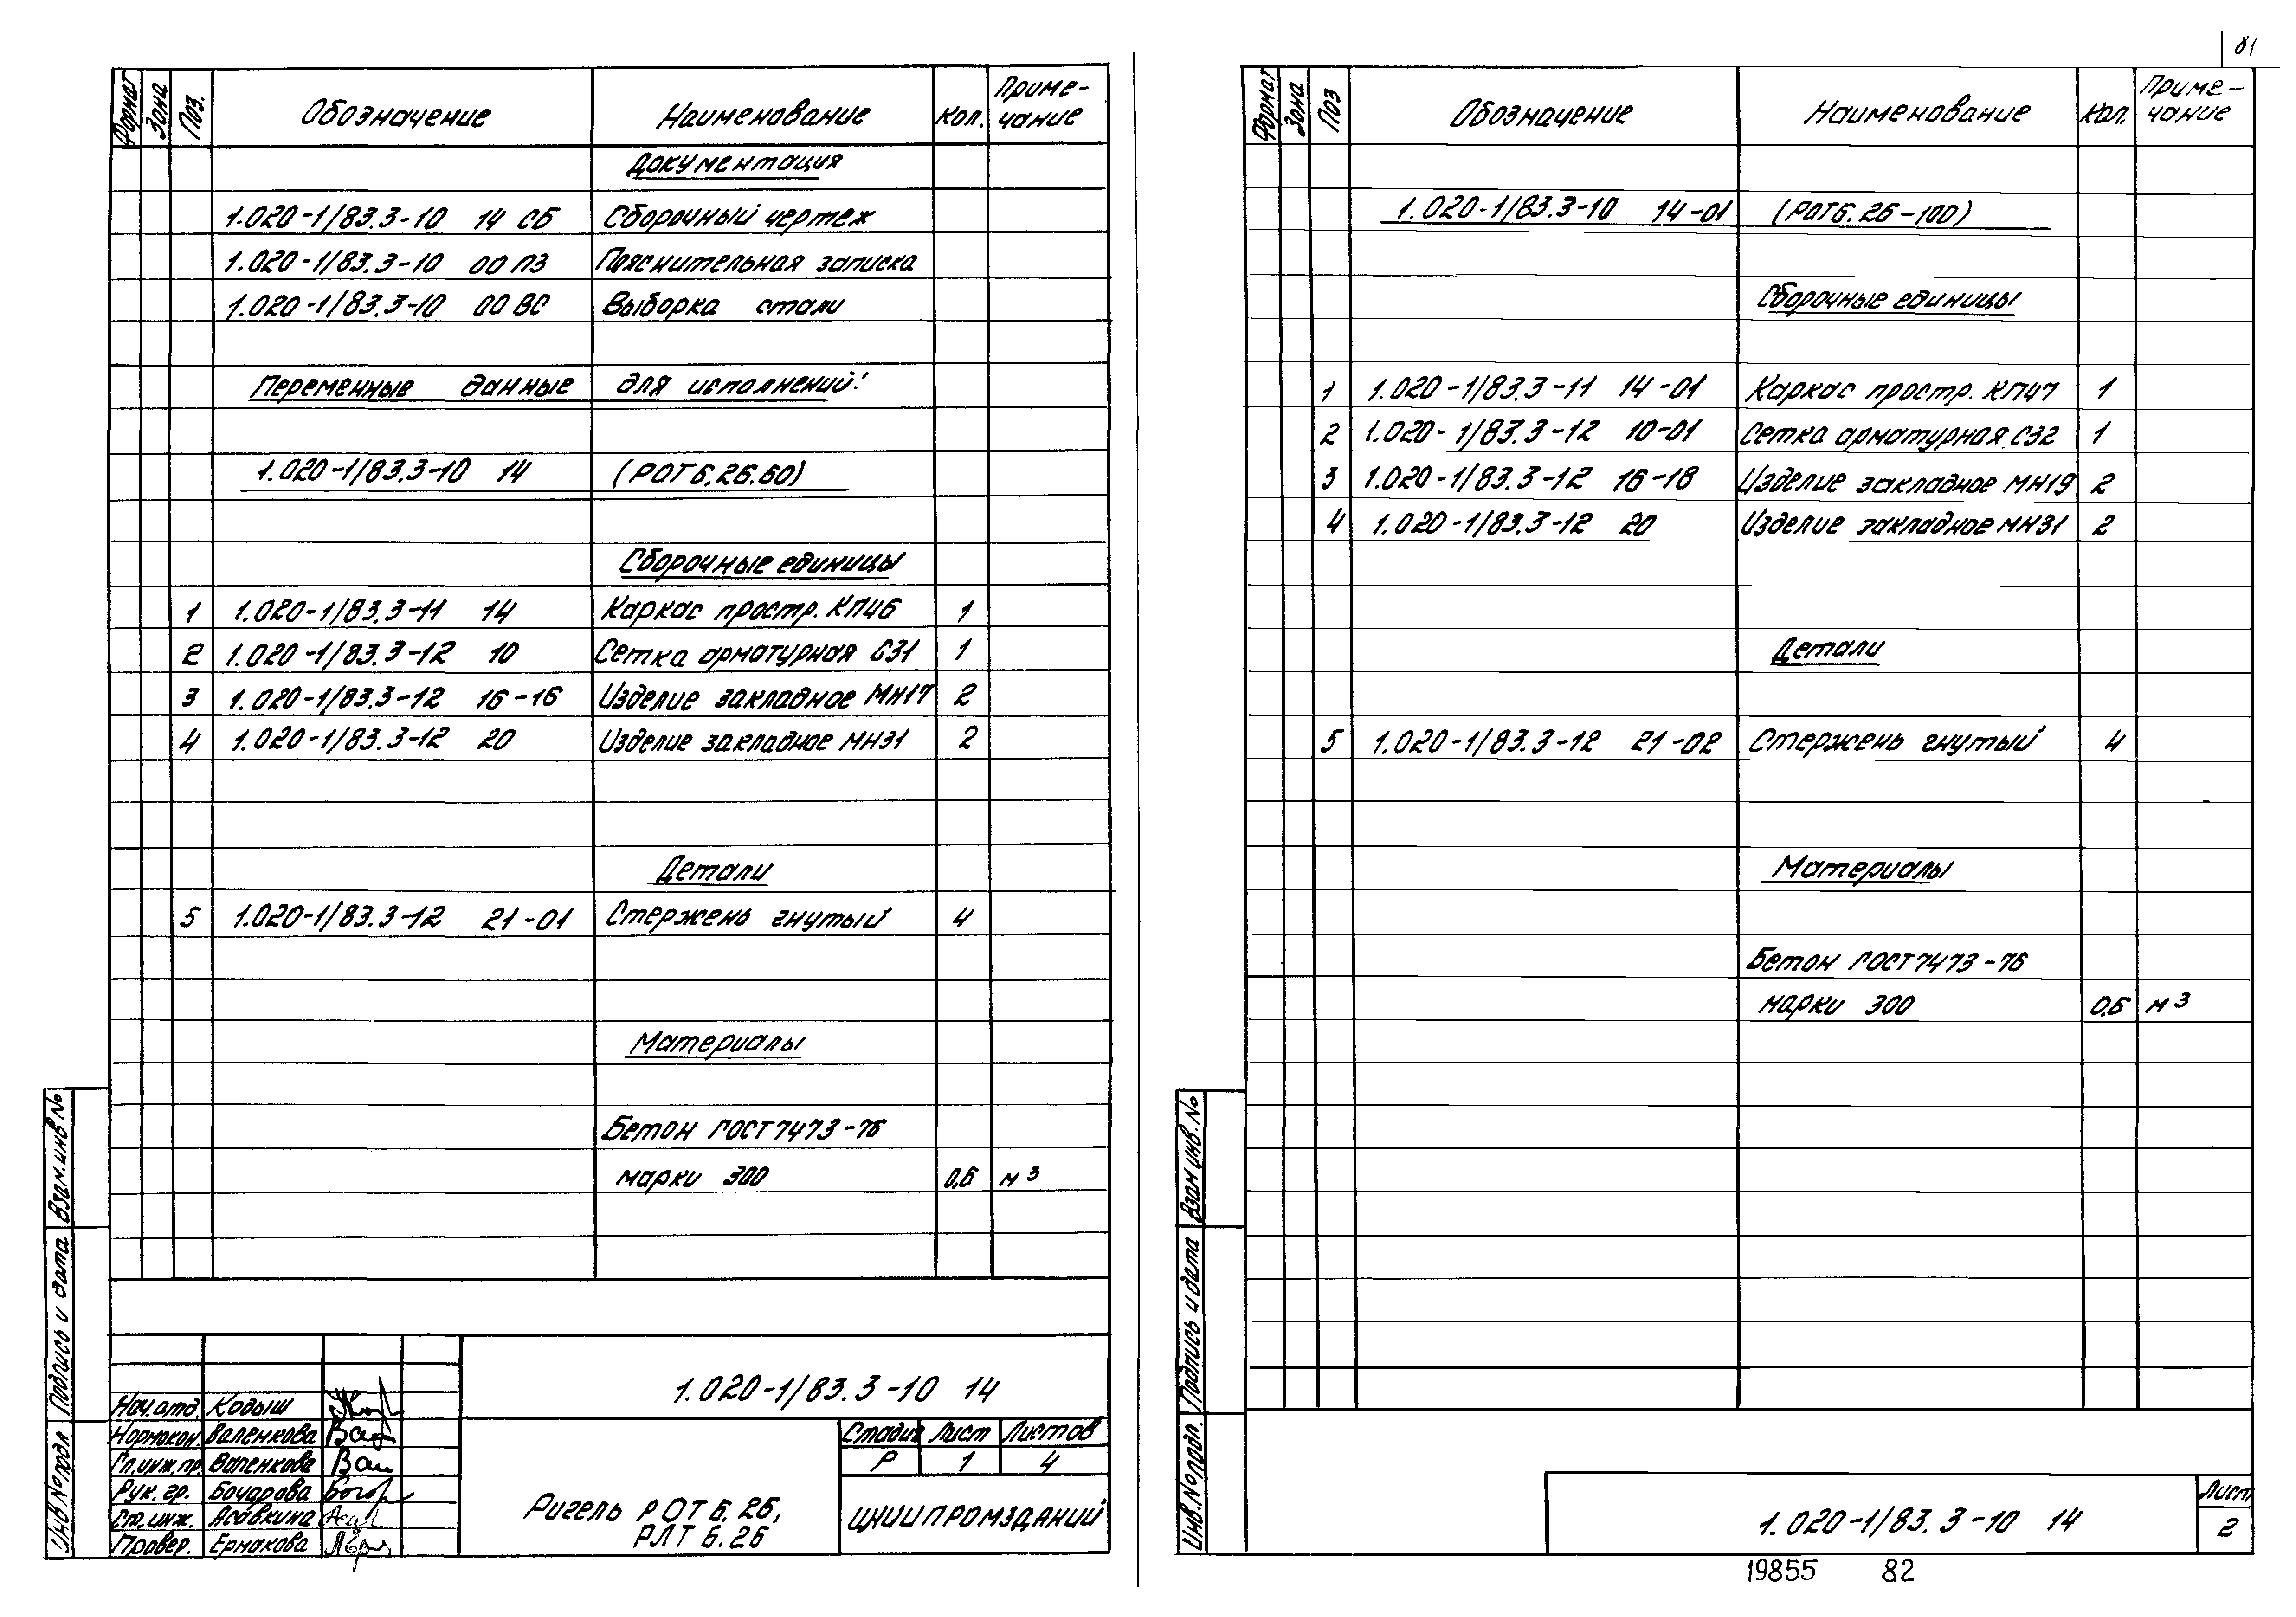 81
Формат Зона Поз. Обозначение Наименование Кол. Приме-
чание
Документация
1.020-1/83.3-10 14 СБ Сборочный чертеж
1.020-1/83.3-10 00 ПЗ Пояснительная записка
1.020-1/83.3-10 00 ВС Выборка стали
Переменные данные для исполнений:
1.020-1/83.3-10 14 (РОТ6.26.60)
Сборочные единицы
1 1.020-1/83.3-11 14 Каркас простр. КП46 1
2 1.020-1/83.3-12 10 Сетка арматурная С31 1
3 1.020-1/83.3-12 16-16 Изделие закладное МН17 2
4 1.020-1/83.3-12 20 Изделие закладное МН31 2
Детали
5 1.020-1/83.3-12 21-01 Стержень гнутый 4
Материалы
Бетон ГОСТ 7473-76
марки 300 0,6 м³
Взам. инв №
Подпись и дата
Инв № подл
1.020-1/83.3-10 14
Нач. отд. Кодыш
Нормокон. Валенкова
Гл. инж. пр. Валенкова
Рук. гр. Бочарова
Ст. инж. Асавкина
Провер. Ермакова
Ригель РОТ 6.26,
РЛТ 6.26
Стадия Лист Листов
Р 1 4
ЦНИИПРОМЗДАНИЙ
Формат Зона Поз Обозначение Наименование Кол. Приме-
чание
1.020-1/83.3-10 14-01 (РОТ6.26-100)
Сборочные единицы
1 1.020-1/83.3-11 14-01 Каркас простр. КП47 1
2 1.020-1/83.3-12 10-01 Сетка арматурная С32 1
3 1.020-1/83.3-12 16-18 Изделие закладное МН19 2
4 1.020-1/83.3-12 20 Изделие закладное МН31 2
Детали
5 1.020-1/83.3-12 21-02 Стержень гнутый 4
Материалы
Бетон ГОСТ 7473-76
марки 300 0,6 м³
Взам инв. №
Подпись и дата
Инв. № подл.
1.020-1/83.3-10 14
Лист
2
19855 82